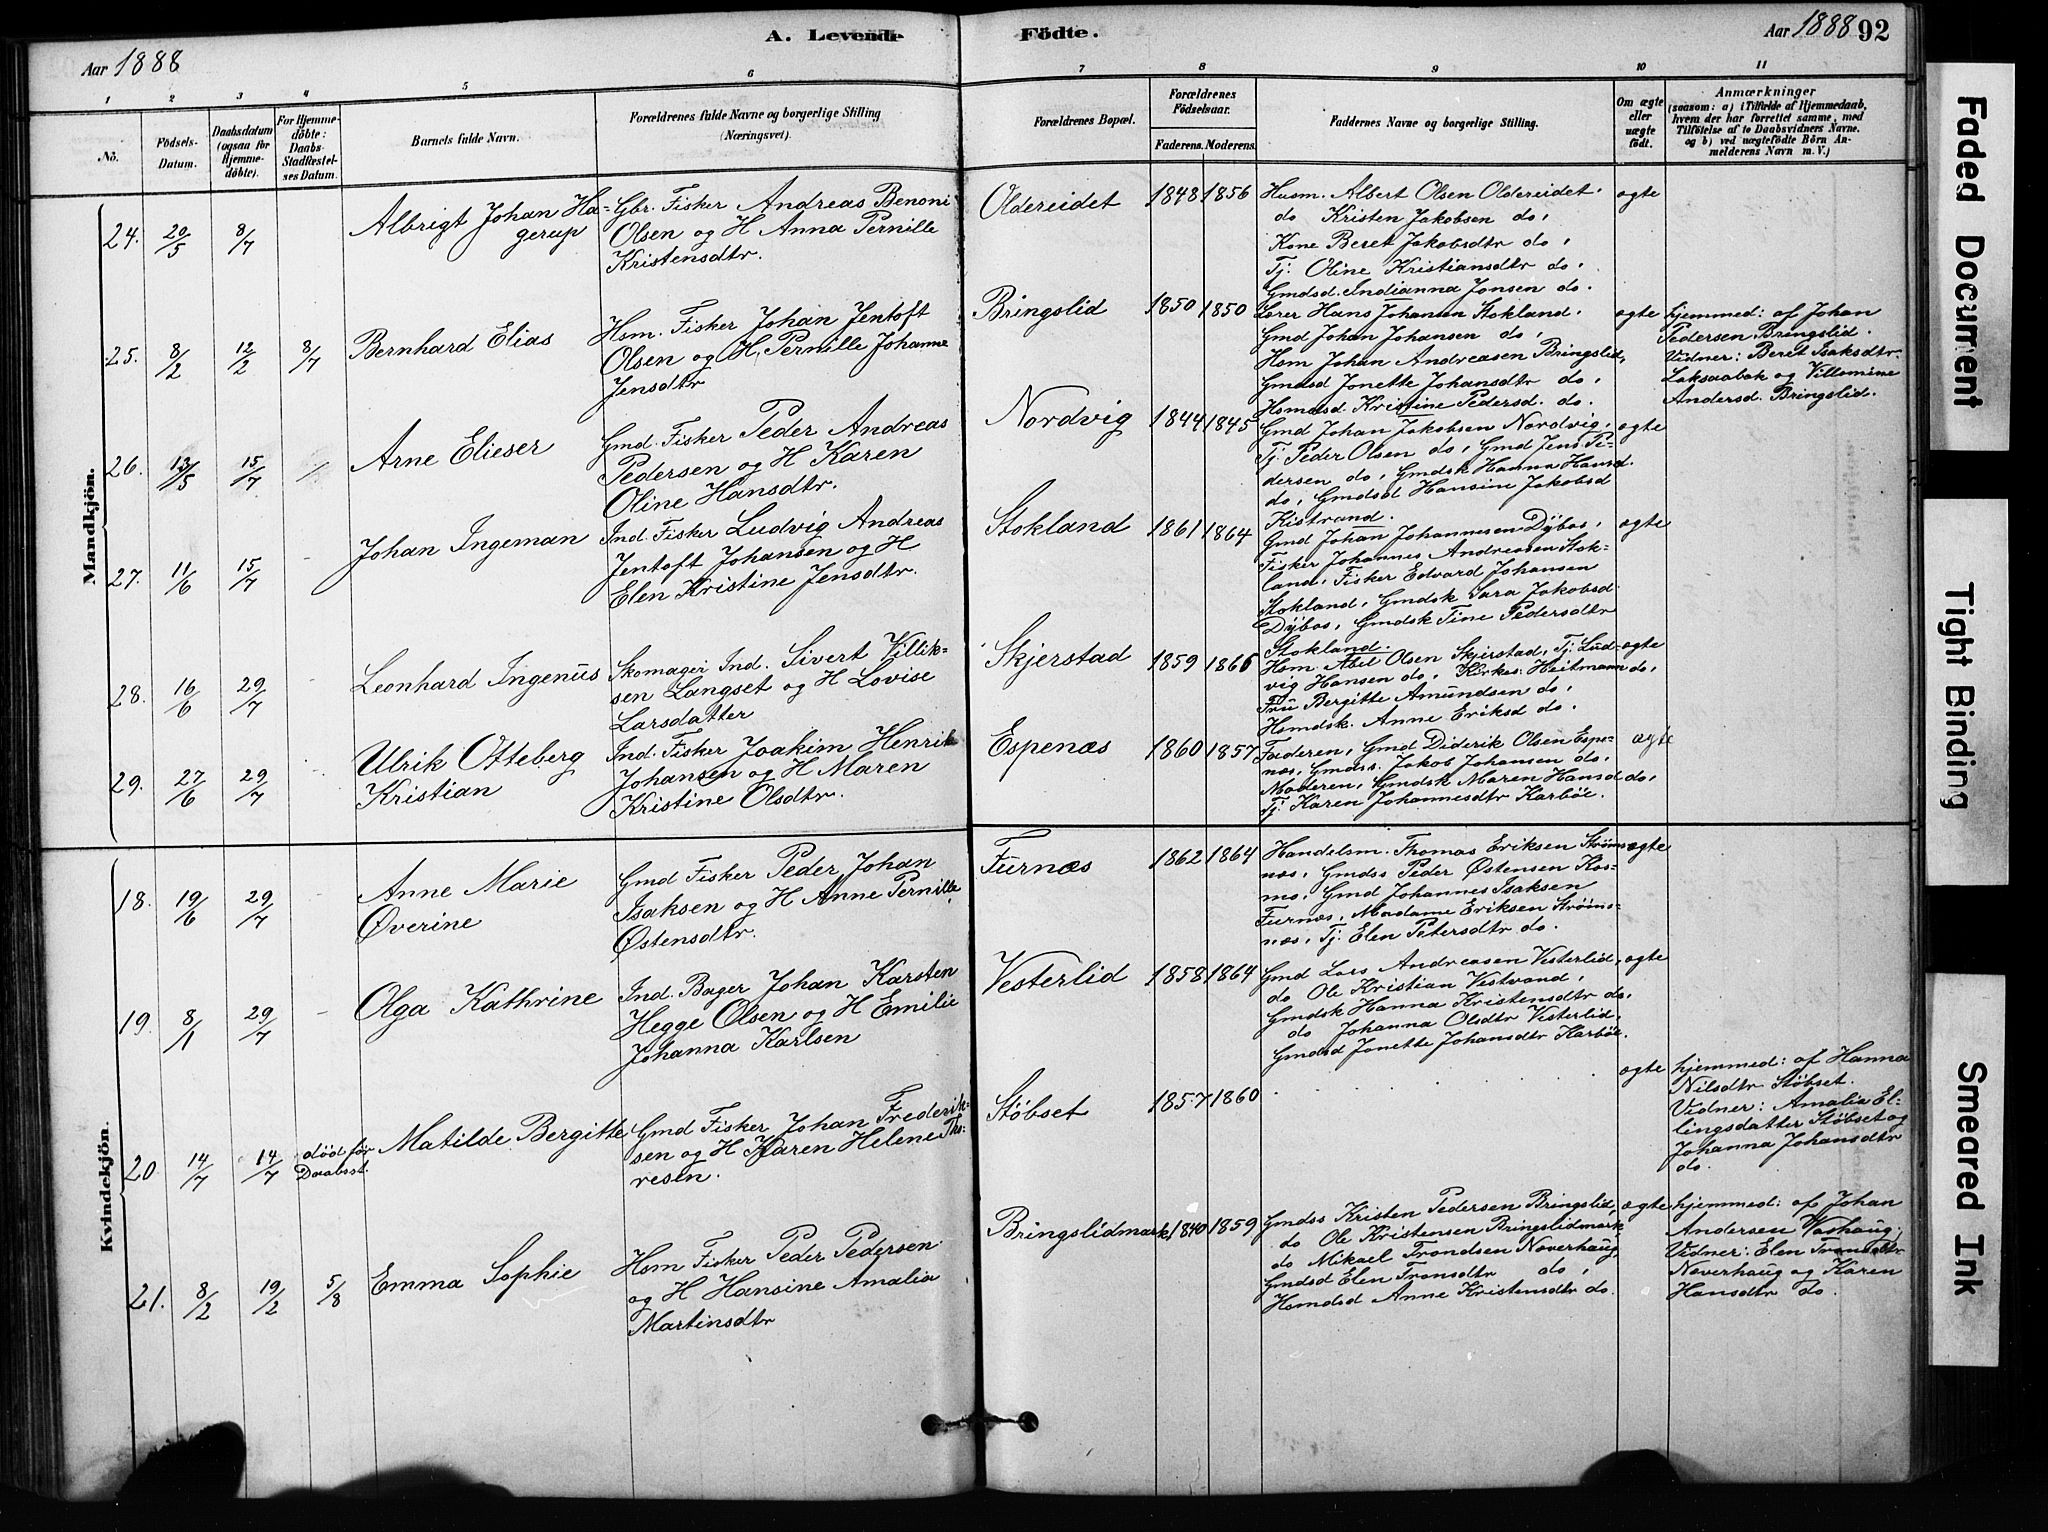 A. Levende Födte.
Aar 1888
Aar 1888 92
1 2 3 4 5 6 7 8 9 10 11
Nö.
Födsels-
Datum.
Daabsdatum
(ogsaa for
Hjemme-
döbte).
For Hjemme-
döbte:
Daabs-
Stadfæstel-
ses Datum.
Barnets fulde Navn.
Forældrenes fulde Navne og borgerlige Stilling
(Næringsvei).
Forældrenes Bopæl.
Forældrenes
Födselsaar.
Faderens. Moderens.
Faddernes Navne og borgerlige Stilling.
Om ægte
eller
uægte
födt.
Anmærkninger
(saasom: a) i Tilfælde af Hjemmedaab,
hvem der har forrettet samme, med
Tilföielse af to Daabsvidners Navne.
og b) ved uægtefödte Börn An-
melderens Navn m. V.)
Mandkjön.
24. 20/5 8/7
Albrigt Johan Ha-
gerup
Gbr. Fisker Andreas Benoni
Olsen og H Anna Pernille
Kristensdtr.
Oldereidet 1848 1856
Husm. Albert Olsen Oldereidet.
do Kristen Jakobsen do.
Kone Beret Jakobsdtr do.
Tj. Oline Kristiansdtr do.
Gmdsd. Indianna Jonsen do.
ægte
25. 8/2 12/2 8/7
Bernhard Elias
Hsm. Fisker Johan Jentoft
Olsen og H. Pernille Johanne
Jensdtr
Bringslid 1850 1850
Lærer Hans Johansen Stokland.
Gmd Johan Johansen do.
Hsm Johan Andreasen Bringslid,
Gmdsd Jonette Johansdtr do.
Hsmdsd. Kristine Pedersd. do.
ægte
hjemmed: af Johan
Pedersen Bringslid.
Vidner: Beret Isaksdtr.
Laksaabak og Villomine
Andersd. Bringslid.
26. 13/5 15/7 /
Arne Elieser
Gmd. Fisker Peder Andreas
Pedersen og H Karen
Oline Hansdtr.
Nordvig 1844 1845
Gmd Johan Jakobsen Nordvig,
Tj. Peder Olsen do, Gmd Jens Pe-
dersen do, Gmdsk Hanna Hansd.
do, Gmdsd Hansine Jakobsd
Kistrand.
ægte
27. 11/6 15/7 -
Johan Ingeman
Ind. Fisker Ludvig Andreas
Jentoft Johansen og H
Elen Kristine Jensdtr.
Stokland 1861 1864
Gmd Johan Johannesen Dybos,
Fisker Johannes Andreasen Stok-
land, Fisker Edvard Johansen
Stokland, Gmdsk Sara Jakobsd
Dybos, Gmdsk Tine Pedersdtr
Stokland.
ægte
28. 16/6 29/7
Leonhard Ingenus
Skomager Ind. Sivert Villik-
sen Langset og H Lovise
Larsdatter
Skjerstad 1859 1866
Hsm. Abel Olsen Skjerstad, Tj. Lud-
vig Hansen do. Kirkes. Heitmann do,
Fru Bergitte Amundsen do.
Hsmdsk. Anne Eriksd do.
ægte
29. 27/6 29/7
Ulrik Otteberg
Kristian
Ind. Fisker Joakim Henrik
Johansen og H Maren
Kristine Olsdtr.
Espenæs 1860 1857
Faderen, Gmd Diderik Olsen Espe-
næs, Gmdss. Jakob Johansen do,
Moderen, Gmdsk Maren Hansd do,
Tj. Karen Johannesdtr Karbøe.
ægte
Kvindekjön.
18. 19/6 29/7 -
Anne Marie
Øverine
Gmd Fisker Peder Johan
Isaksen og H Anne Pernille
Østensdtr.
Furnæs 1862 1864
Handelsm. Thomas Eriksen Strøms-
næs, Gmdss Peder Østensen Kos-
mo, Gmd Johannes Isaksen
Furnæs, Madame Eriksen Strøms-
næs, Tj. Elen Petersdtr do.
ægte
19. 8/1 29/7 -
Olga Kathrine
Ind. Bager Johan Karsten
Hegge Olsen og H Emilie
Johanna Karlsen
Vesterlid 1858 1864
Gmd Lars Andreasen Vesterlid,
do Ole Kristian Vestvand,
Gmdsk Hanna Kristensdtr do,
do Johanna Olsdtr Vesterlid.
Gmdsd Jonette Johansdtr Karbøe.
ægte
20 14/7 14/7 død før
Daabsst.
Matilde Bergitte
Gmd Fisker Johan Frederik-
sen og H Karen Helene Tho-
resen.
Støbset 1857 1860
ægte
hjemmed: af Hanna
Nilsdtr Støbset.
Vidner: Amalia El-
lingsdatter Støbset og
Johanna Johansdtr
do.
21. 8/2 19/2 5/8
Emma Sophie
Hsm Fisker Peder Pedersen
og H Hansine Amalia
Martinsdtr
Bringslidmark 1840 1859
Gmdss Kristen Pedersen Bringslid,
do Ole Kristensen Bringslidmark,
do Mikael Trondsen Noverhaug
Gmdsd Elen Tronsdtr do,
Hsmdsd Anne Kristensdtr do.
ægte
hjemmed: af Johan
Andersen
Vidner: Elen Tronsdtr
Noverhaug og Karen
Hansdtr do.
Faded Document
Tight Binding
Smeared Ink